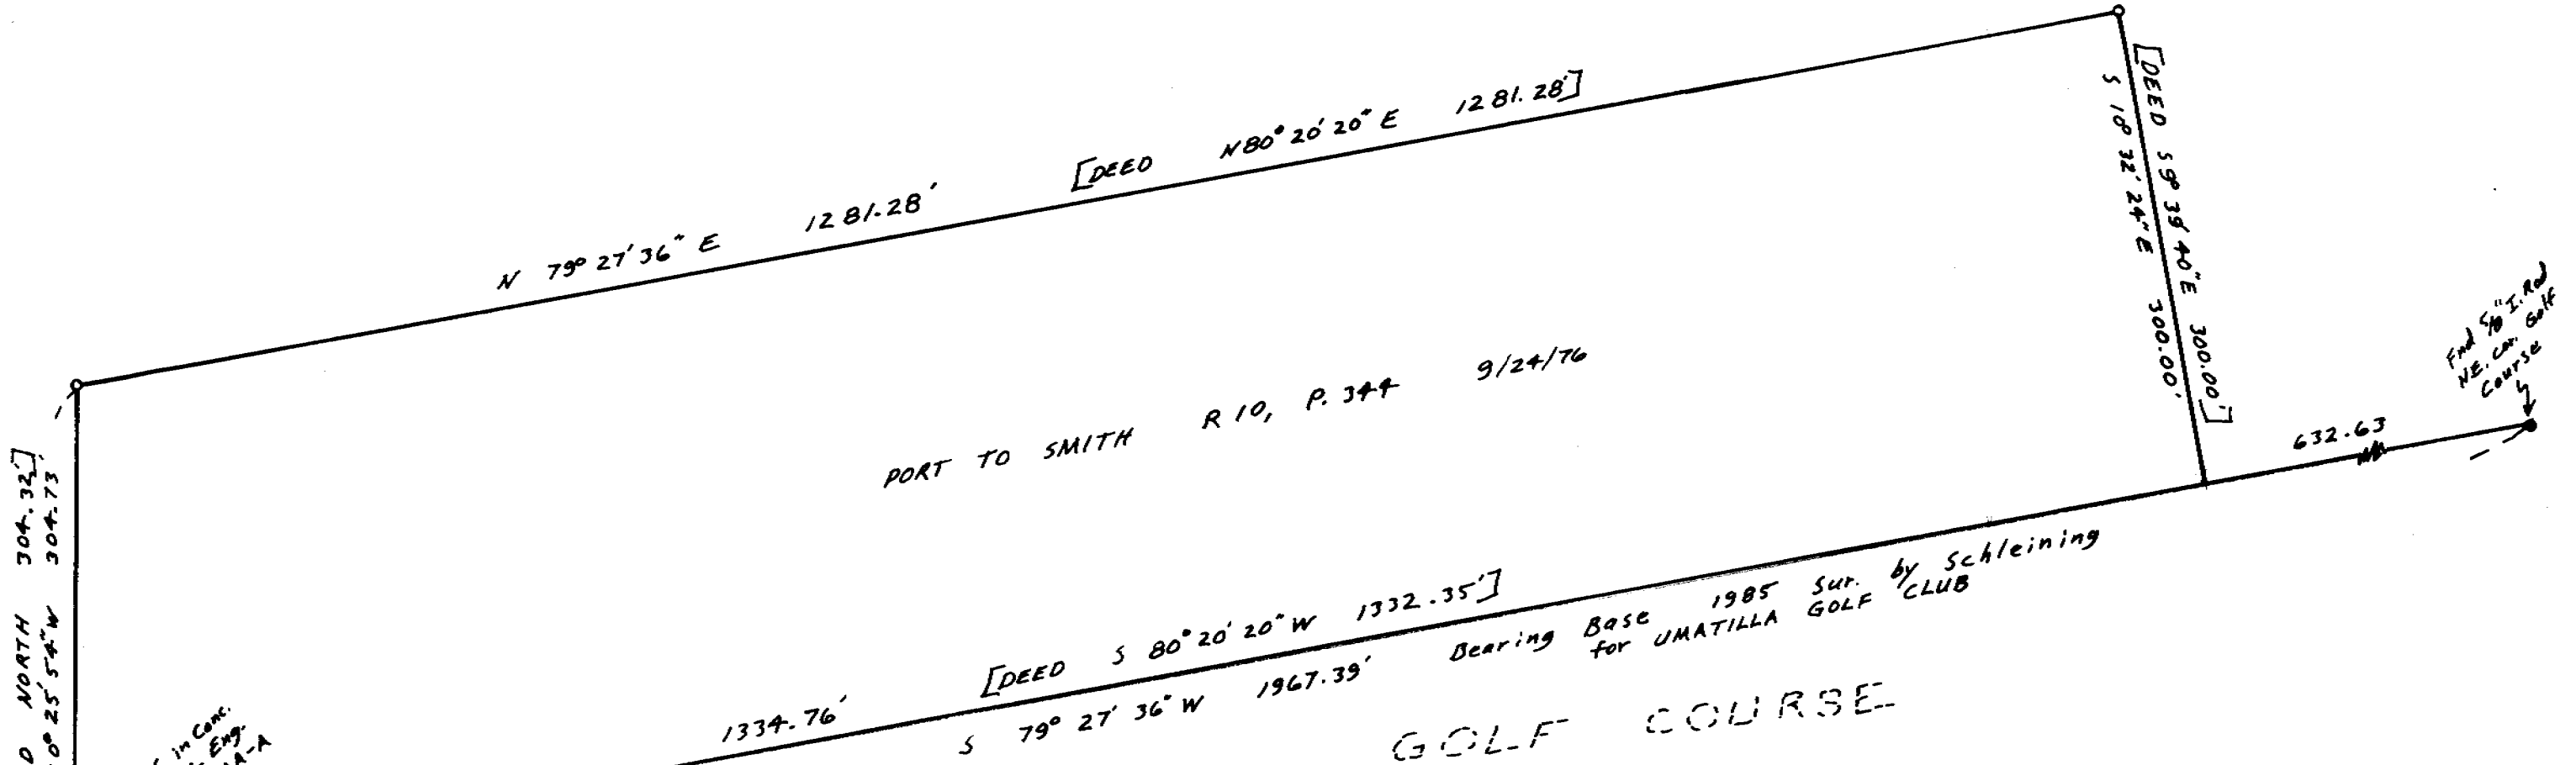 N 79° 27' 36" E 1281.28' [DEED N 80° 20' 20" E 1281.28']
[DEED S 9° 39' 40" E 300.00']
S 10° 32' 24" E 300.00'
Fnd 5/8" I. Rod
NE. cor. Golf
Course
632.63
PORT TO SMITH R 10, P. 344 9/24/76
NORTH 304.32']
0° 25' 54" W 304.73'
1334.76' [DEED S 80° 20' 20" W 1332.35']
S 79° 27' 36" W 1967.39' Bearing Base 1985 Sur. by Schleining
for UMATILLA GOLF CLUB
GOLF COURSE
in Conc.
Eng.
A-A